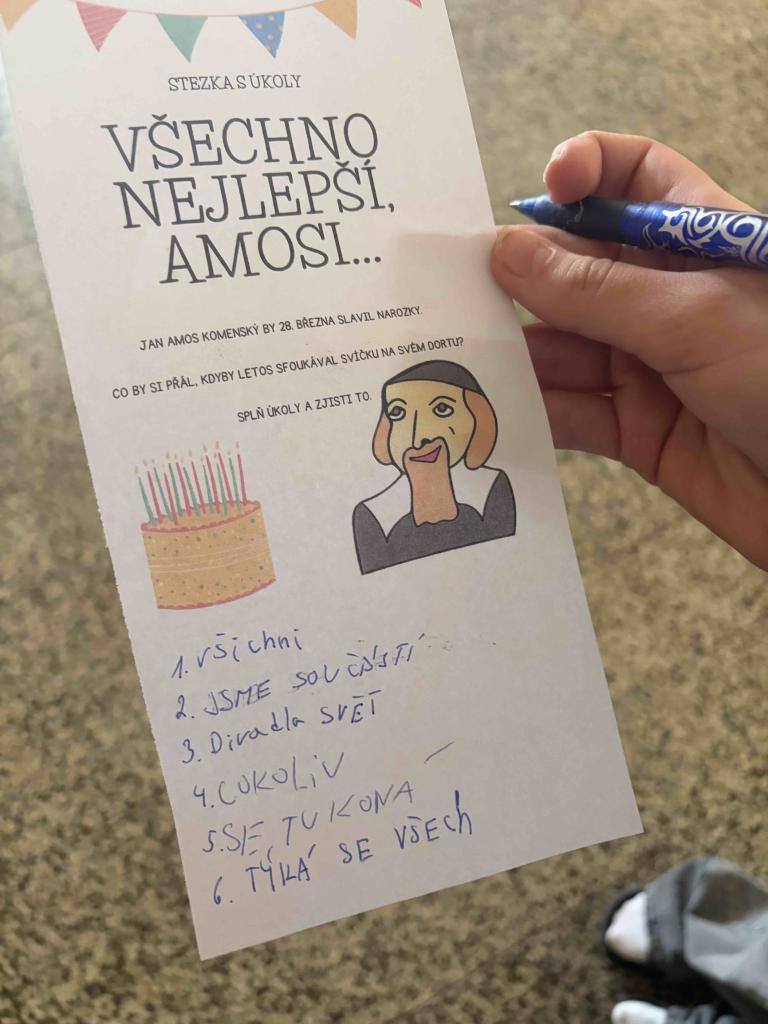 STEZKA S ÚKOLY
VŠECHNO
NEJLEPŠÍ,
AMOSI...
JAN AMOS KOMENSKÝ BY 28. BŘEZNA SLAVIL NAROZKY.
CO BY SI PŘÁL, KDYBY LETOS SFOUKÁVAL SVÍČKU NA SVÉM DORTU?
SPLŇ ÚKOLY A ZJISTI TO.
1. všichni
2. JSME SOUČÁSTÍ
3. Divadla SVĚT
4. COKOLIV
5. SE TU KONA
6. TÝKÁ SE VŠECH